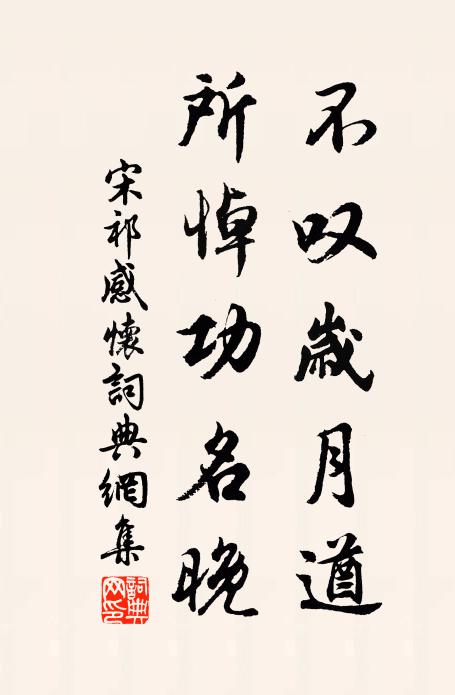 不叹歲月遒
所悼功名晚
宋祁感懷詞典網集
詞典网印